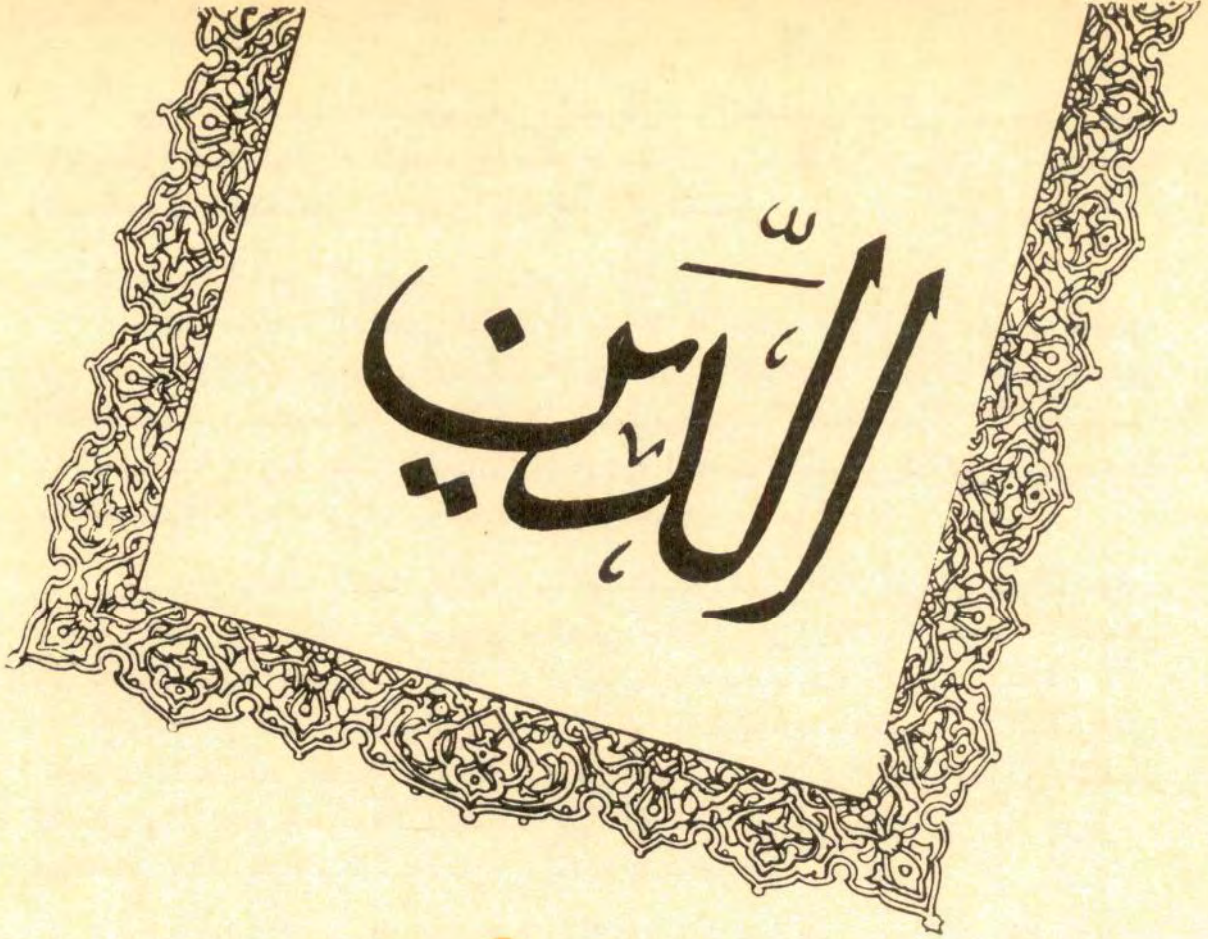 الدّين